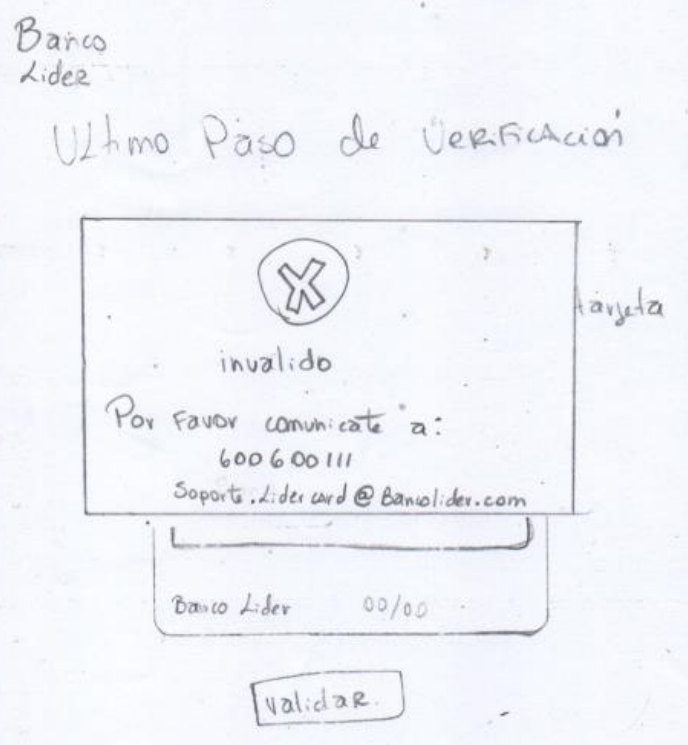 Banco
Lider
Ultimo Paso de Verificación
tarjeta
invalido
Por Favor comunicate a:
600 600 111
Soporte.Lidercard@Bancolider.com
Banco Lider 00/00
validar.